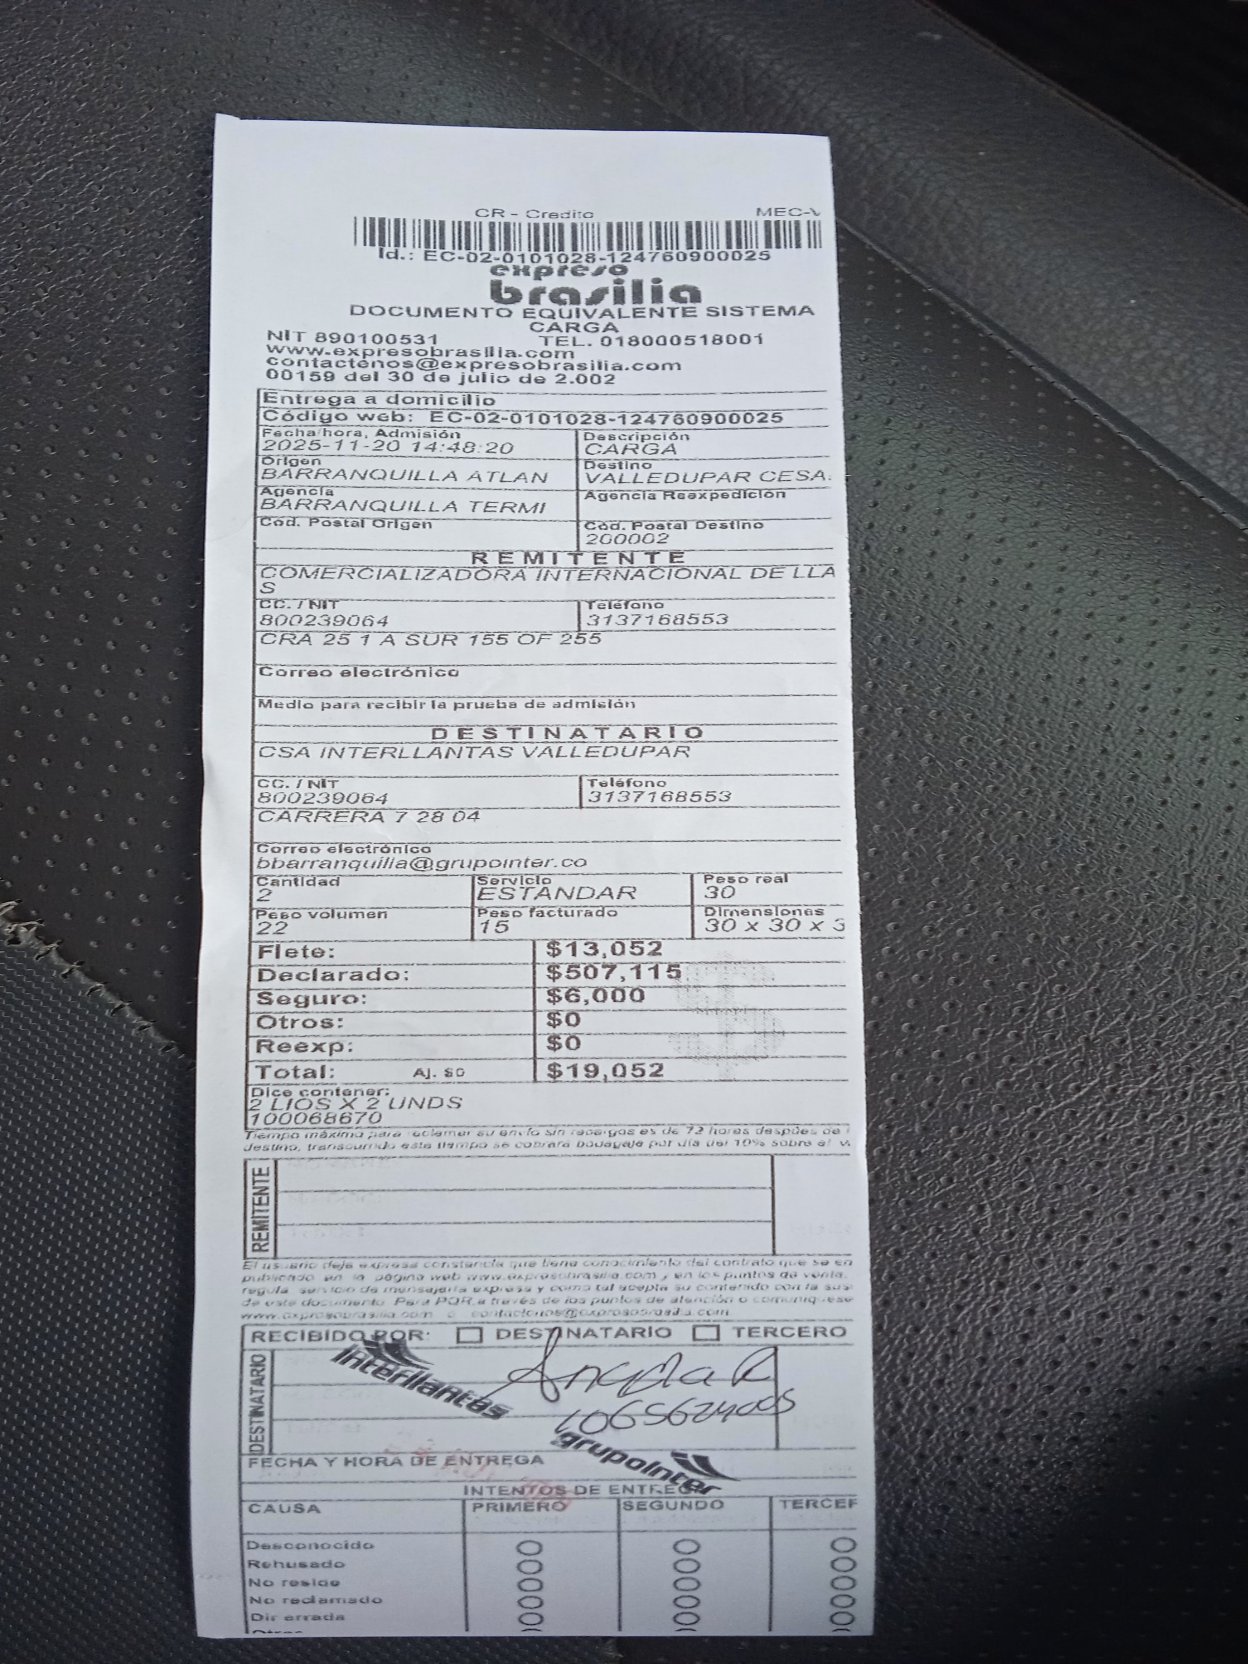 CR - Credito MEC-V
Id.: EC-02-0101028-124760900025
expreso
brasilia
DOCUMENTO EQUIVALENTE SISTEMA
CARGA
NIT 890100531 TEL. 018000518001
www.expresobrasilia.com
contactenos@expresobrasilia.com
00159 del 30 de julio de 2.002
Entrega a domicilio
Código web: EC-02-0101028-124760900025
Fecha/hora, Admisión Descripción
2025-11-20 14:48:20 CARGA
Origen Destino
BARRANQUILLA ATLAN VALLEDUPAR CESA.
Agencia Agencia Reexpedición
BARRANQUILLA TERMI
Cód. Postal Origen Cód. Postal Destino
200002
REMITENTE
COMERCIALIZADORA INTERNACIONAL DE LLA
S
CC. / NIT Teléfono
800239064 3137168553
CRA 25 1 A SUR 155 OF 255
Correo electrónico
Medio para recibir la prueba de admisión
DESTINATARIO
CSA INTERLLANTAS VALLEDUPAR
CC. / NIT Teléfono
800239064 3137168553
CARRERA 7 28 04
Correo electrónico
bbarranquilla@grupointer.co
Cantidad Servicio Peso real
2 ESTANDAR 30
Peso volumen Peso facturado Dimensiones
22 15 30 x 30 x 3
Flete: $13,052
Declarado: $507,115
Seguro: $6,000
Otros: $0
Reexp: $0
Total: Aj. $0 $19,052
Dice contener:
2 LIOS X 2 UNDS
100068670
Tiempo máximo para reclamar su envío sin recargos es de 72 horas después de
destino, transcurrido este tiempo se cobrará bodegaje por día del 10% sobre el v
REMITENTE
El usuario deja expresa constancia que tiene conocimiento del contrato que se en
publicado en la página web www.expresobrasilia.com y en los puntos de venta,
regula servicio de mensajería expresa y como tal acepta su contenido con la sus
de este documento. Para PQR a través de los puntos de atención o comuníquese
www.expresobrasilia.com o contactenos@expresobrasilia.com
RECIBIDO POR: DESTINATARIO TERCERO
DESTINATARIO
interllantas
Angela R
1065624005
grupointer
FECHA Y HORA DE ENTREGA
INTENTOS DE ENTREGA
CAUSA PRIMERO SEGUNDO TERCER
Desconocido
Rehusado
No reside
No reclamado
Dir errada